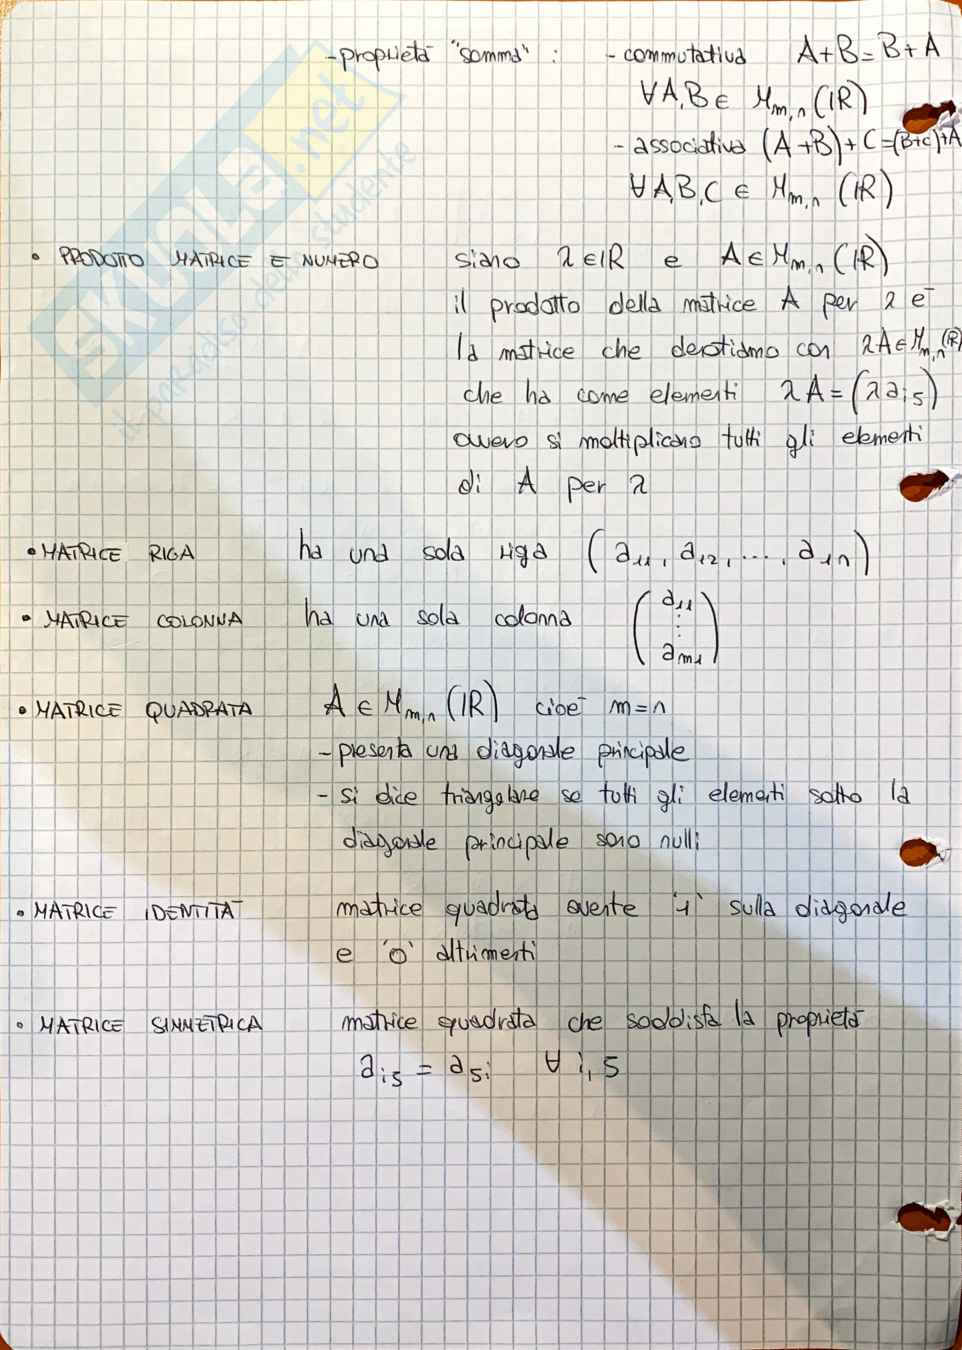 -proprietà "somma" : - commutativa A+B=B+A
∀A,B ∈ Mm,n (IR)
- associativa (A+B)+C=(B+C)+A
∀A,B,C ∈ Mm,n (IR)
• PRODOTTO MATRICE E NUMERO siano λ∈IR e A∈Mm,n (IR)
il prodotto della matrice A per λ è
la matrice che denotiamo con λA∈Mm,n(IR)
che ha come elementi λA=(λaij)
ovvero si moltiplicano tutti gli elementi
di A per λ
• MATRICE RIGA ha una sola riga (a11, a12, ..., a1n)
• MATRICE COLONNA ha una sola colonna (a11 ⋮ am1)
• MATRICE QUADRATA A∈Mm,n (IR) cioè m=n
- presenta una diagonale principale
- si dice triangolare se tutti gli elementi sotto la
diagonale principale sono nulli
• MATRICE IDENTITÀ matrice quadrata avente '1' sulla diagonale
e '0' altrimenti
• MATRICE SIMMETRICA matrice quadrata che soddisfa la proprietà
aij = aji ∀ i,j
SKUOLA.net
il paradiso dello studente